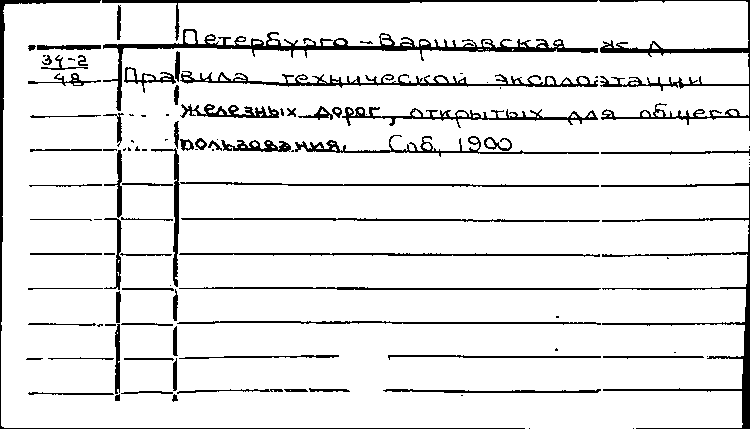 Петербурго-Варшавская ж. д
34-2
48 Правила технической эксплоатации
железных дорог, открытых для общего
пользования. Спб, 1900